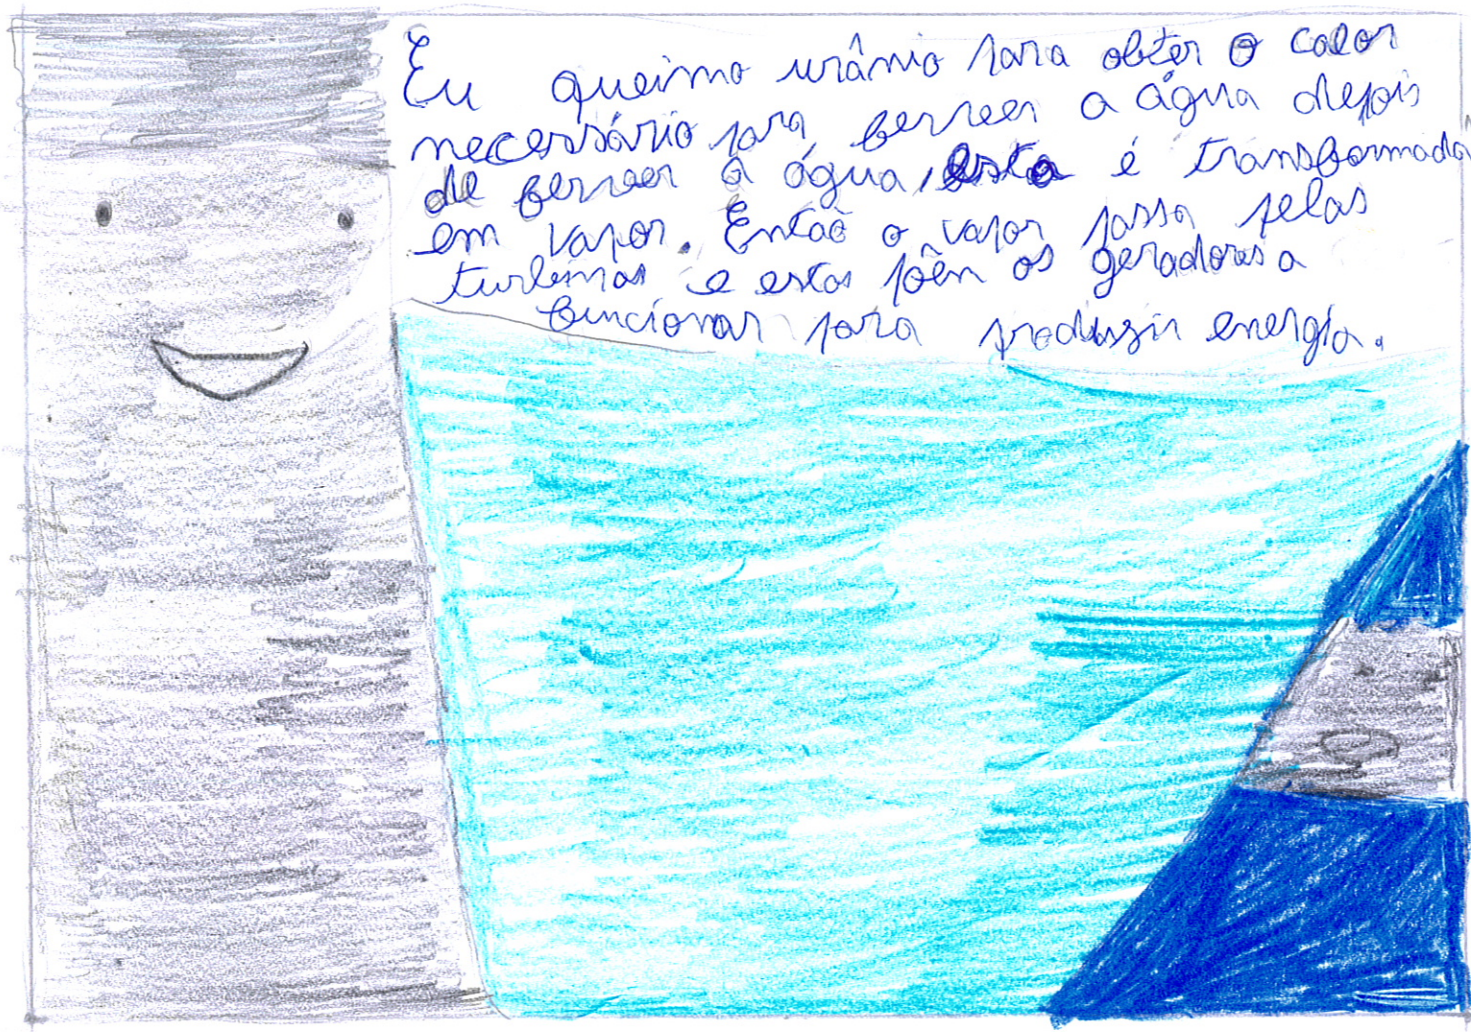 Eu queimo urânio para obter o calor
necessário para ferver a água depois
de ferver a água, esta é transformada
em vapor. Então o vapor passa pelas
turbinas e estas põen os geradores a
funcionar para produzir energia.